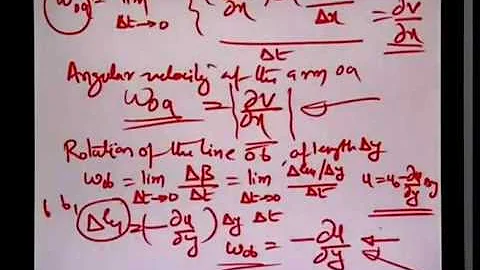 ω_oa = lim Δt→0 { ∂x / Δx / Δt = ∂v/∂x
Angular velocity of the arm oa
ω_oa = |∂v/∂x|
Rotation of the line ob of length Δy
ω_ob = lim Δt→0 Δβ/Δt = lim Δt→0 Δey/Δy / Δt u = u₀ - ∂u/∂y Δy
b b₁ Δey = (-∂u/∂y) Δy Δt
ω_ob = -∂u/∂y